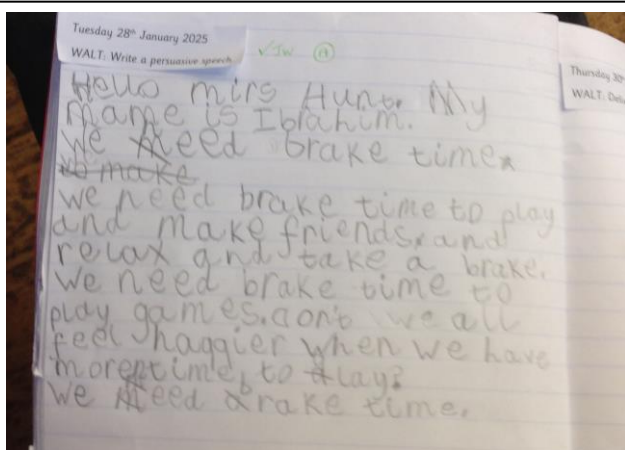 Tuesday 28th January 2025
WALT: Write a persuasive speech
✓SW
Hello mirs Hunt. My
name is Ibrahim.
We need brake time.
to make
we need brake time to play
and make friends. and
relax and take a brake.
We need brake time to
play games. don't we all
feel haggier when we have
more time to play?
We need brake time.
Thursday 30
WALT: